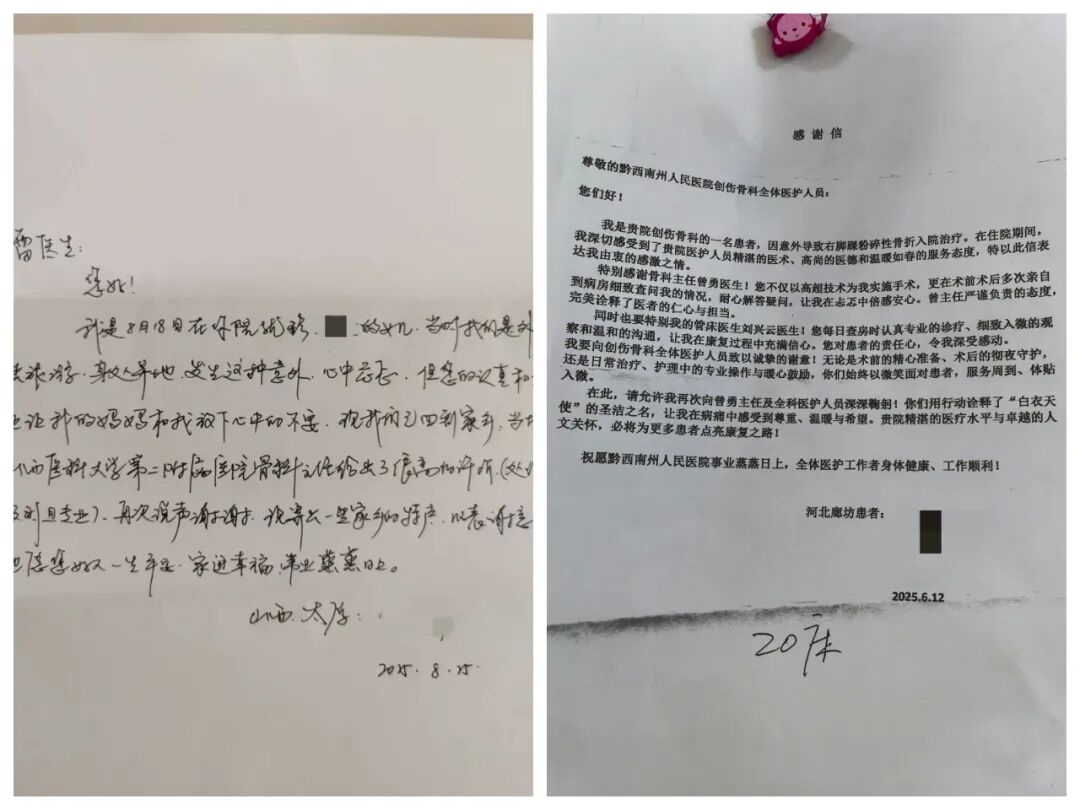 雷医生:
您好!
我是8月18日在你院就诊,的女儿,当时我们是外
旅游,身处异地,发生这种意外,心中忐忑,但您的认真和
让我的妈妈和我放下心中的不安,现我们已回到家乡,当
西医科大学第二附属医院骨科主任给出了很高的评价(处
及时且专业),再次说声谢谢,寄去一些家乡的特产,以表谢意
愿您好人一生平安,家庭幸福,事业蒸蒸日上。
山西.太原:
2025.8.25.
感谢信
尊敬的黔西南州人民医院创伤骨科全体医护人员:
您们好!
我是贵院创伤骨科的一名患者,因意外导致右脚踝粉碎性骨折入院治疗。在住院期间,
我深切感受到了贵院医护人员精湛的医术、高尚的医德和温暖如春的服务态度,特以此信表
达我由衷的感激之情。
特别感谢骨科主任曾勇医生!您不仅以高超技术为我实施手术,更在术前术后多次亲自
到病房细致查问我的情况,耐心解答疑问,让我在忐忑中倍感安心。曾主任严谨负责的态度,
完美诠释了医者的仁心与担当。
同时也要特别我的管床医生刘兴云医生!您每日查房时认真专业的诊疗、细致入微的观
察和温和的沟通,让我在康复过程中充满信心。您对患者的责任心,令我深受感动。
我要向创伤骨科全体医护人员致以诚挚的谢意!无论是术前的精心准备、术后的彻夜守护,
还是日常治疗、护理中的专业操作与暖心鼓励,你们始终以微笑面对患者,服务周到、体贴
入微。
在此,请允许我再次向曾勇主任及全科医护人员深深鞠躬!你们用行动诠释了“白衣天
使”的圣洁之名,让我在病痛中感受到尊重、温暖与希望。贵院精湛的医疗水平与卓越的人
文关怀,必将为更多患者点亮康复之路!
祝愿黔西南州人民医院事业蒸蒸日上,全体医护工作者身体健康、工作顺利!
河北廊坊患者:
2025.6.12
20床